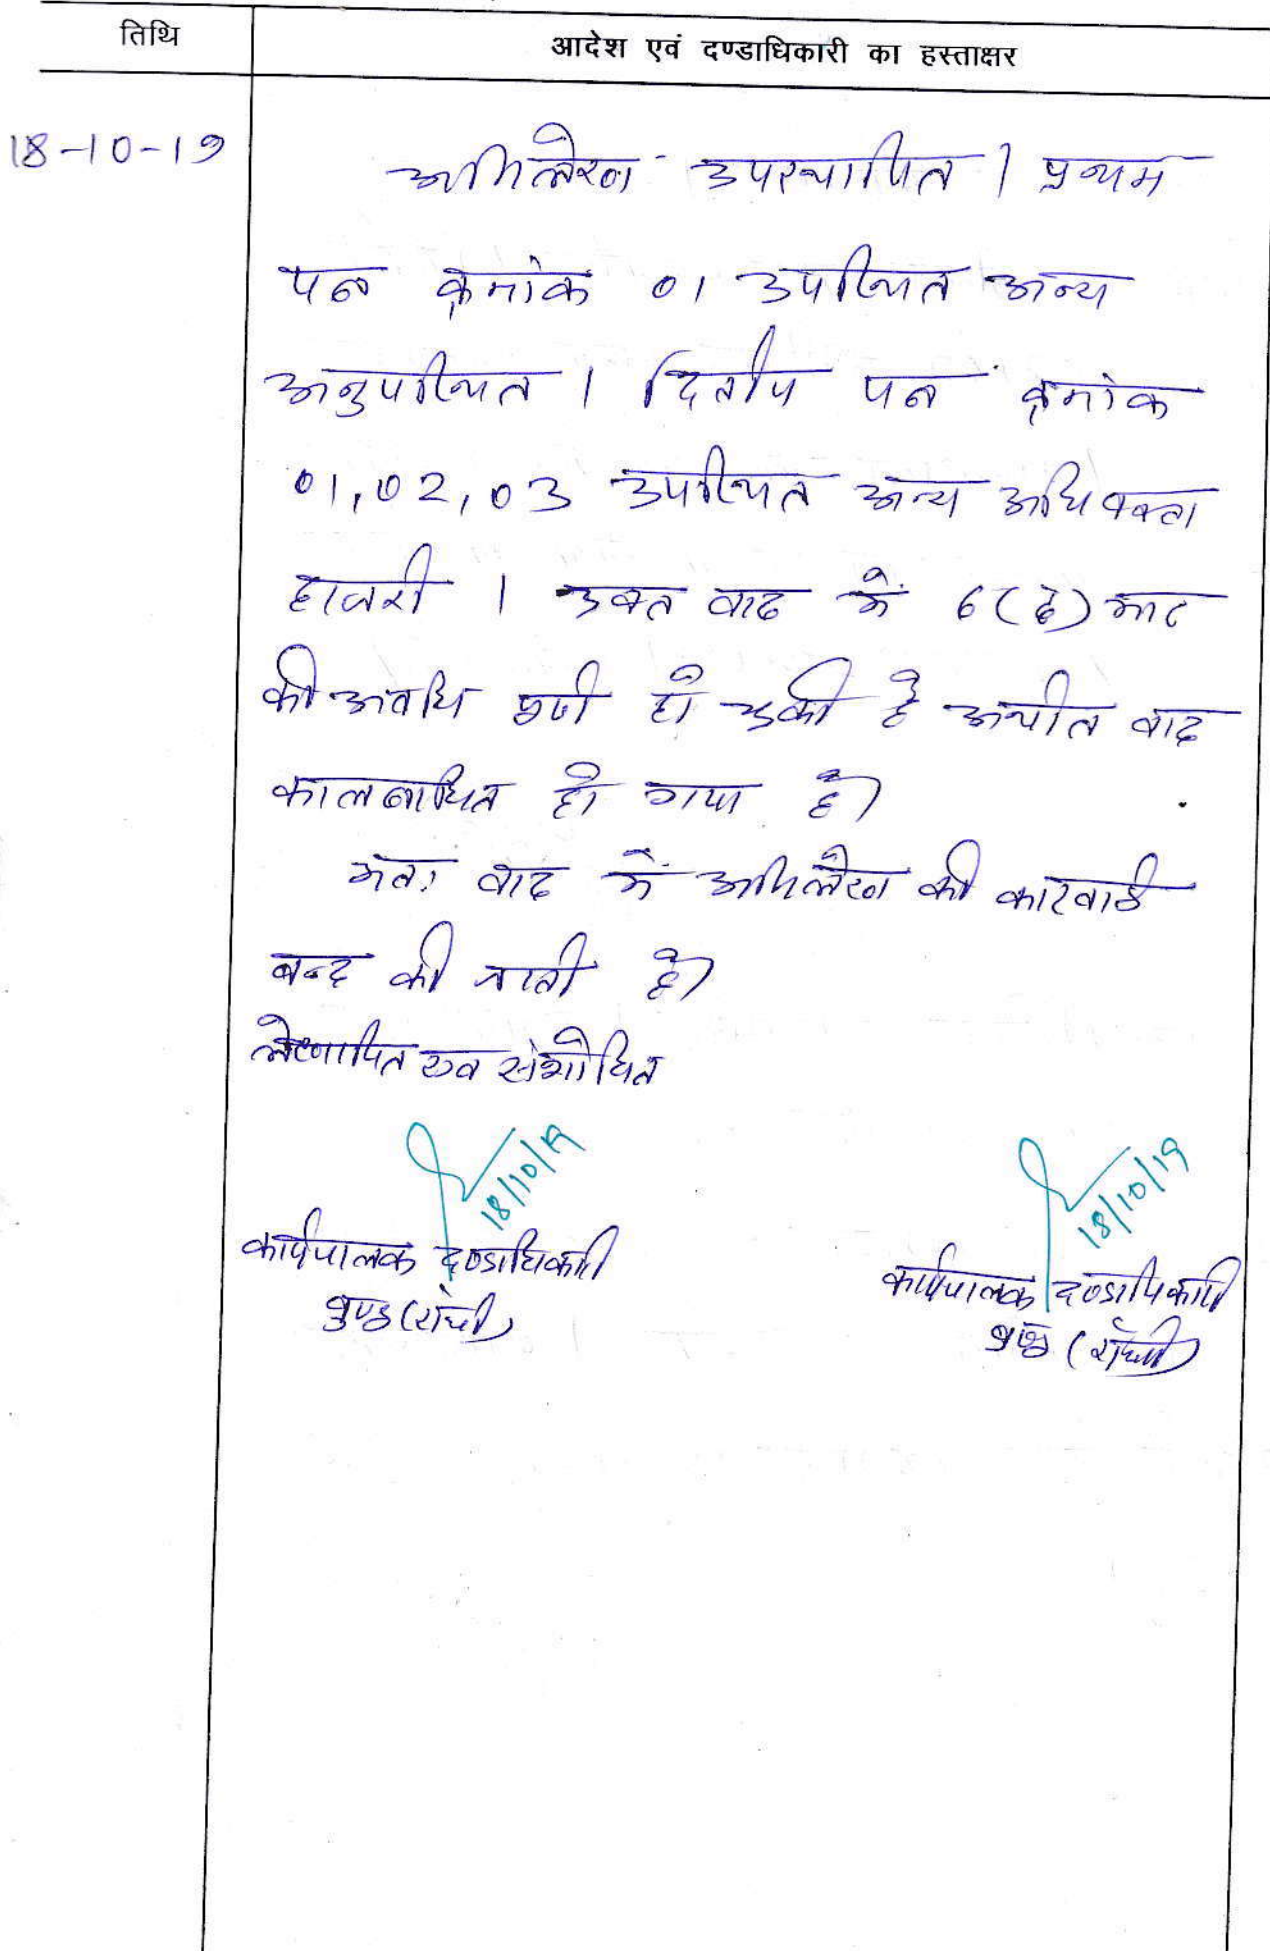 तिथि
आदेश एवं दण्डाधिकारी का हस्ताक्षर
18-10-19
अभिलेख उपस्थापित । प्रथम
पक्ष क्रमांक 01 उपस्थित अन्य
अनुपस्थित । द्वितीय पक्ष क्रमांक
01,02,03 उपस्थित अन्य अधिवक्ता
हाजरी । उक्त वाद में 6(छः) माह
की अवधि पूर्ण हो चुकी है अर्थात वाद
कालबाधित हो गया है।
अतः वाद में अभिलेख की कारवाई
बन्द की जाती है।
लेखापित एवं संशोधित
18/10/19
18/10/19
कार्यपालक दण्डाधिकारी
कार्यपालक दण्डाधिकारी
बुण्डू (राँची)
बुण्डू (राँची)